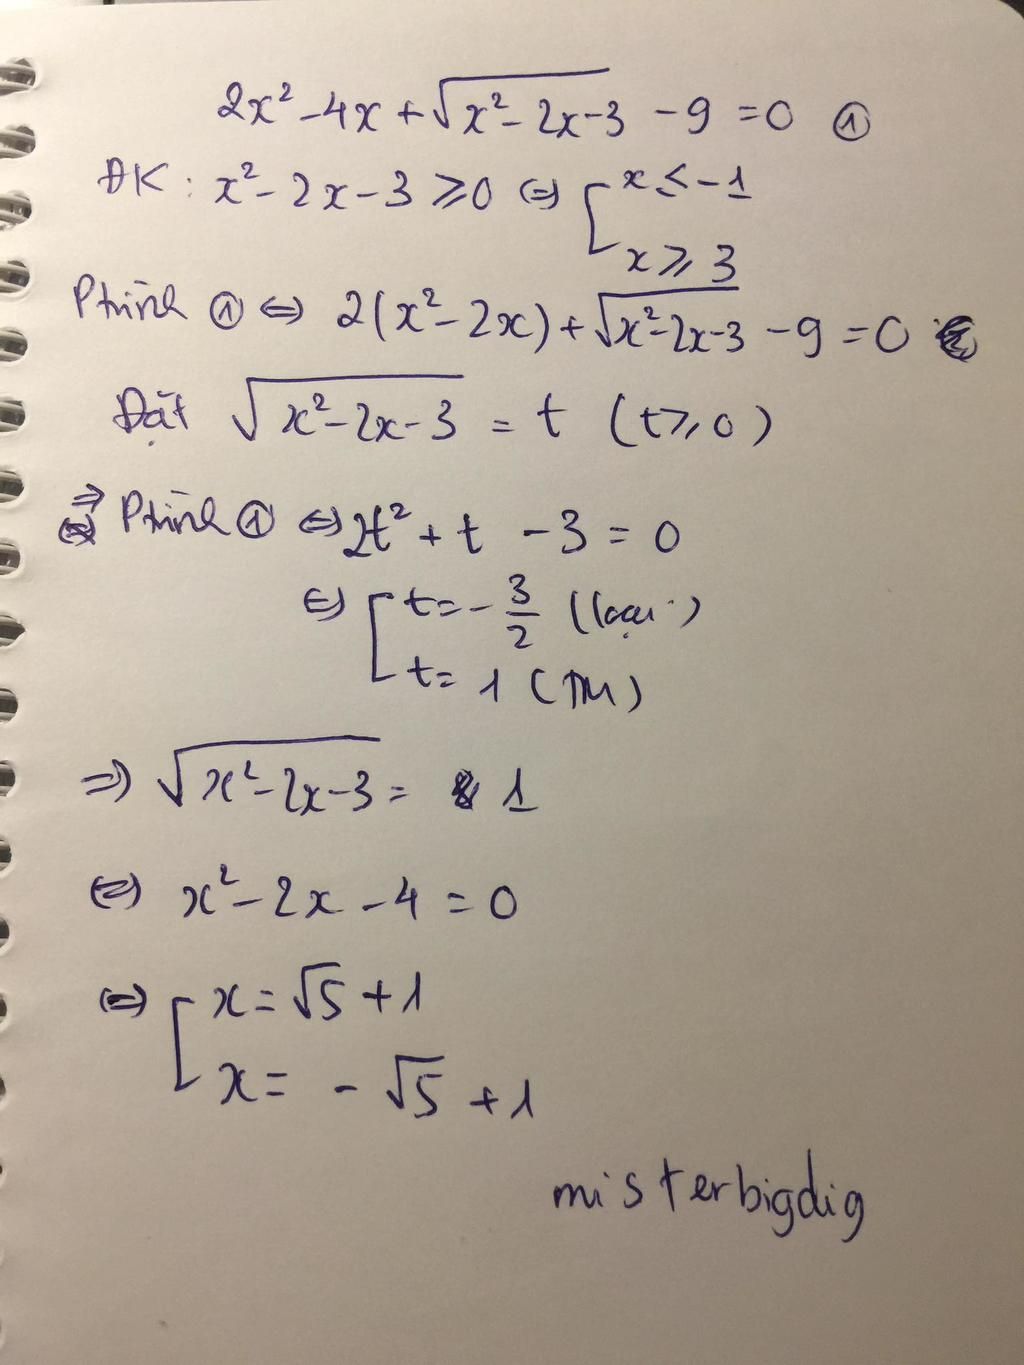 2x² - 4x + √(x² - 2x - 3) - 9 = 0 ①
ĐK: x² - 2x - 3 ⩾ 0 ⇔ [ x ≤ -1
x ⩾ 3
Ptrình ① ⇔ 2(x² - 2x) + √(x² - 2x - 3) - 9 = 0
Đặt √(x² - 2x - 3) = t (t ⩾ 0)
⇒ Ptrình ① ⇔ 2t² + t - 3 = 0
⇔ [ t = - 3/2 (loại)
t = 1 (TM)
⇒ √(x² - 2x - 3) = 1
⇔ x² - 2x - 4 = 0
⇔ [ x = √5 + 1
x = - √5 + 1
misterbigdig